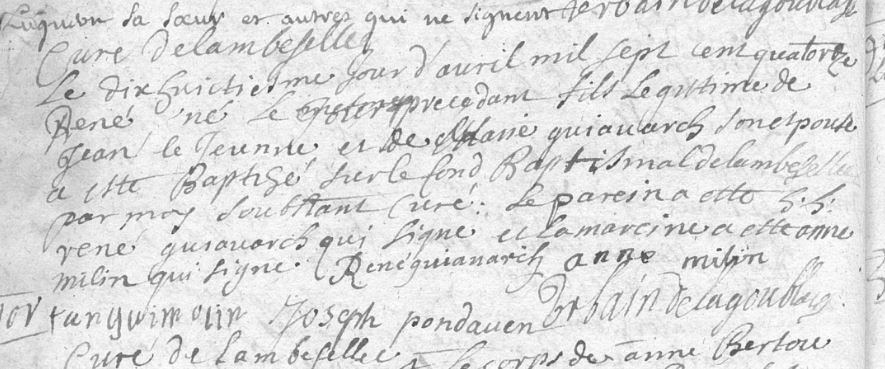 sa sœur et autres qui ne signent
Curé de lambeselleq
Le dix huictiesme jour d'auril mil sept cent quatorze
René né le precedant fils Legittime de
jean le Jeunne et de Marie guiauarch son espouse
a esté Baptizé sur le fond Baptismal de lambesellec
par moy soubstant Curé: Le parein a otté h.h.
rené guiauarch qui signe et la mareine a otte anne
milin qui signe. René guiauarch anne milin
tanguimolin Joseph pondauen Vrbain Delagoublaye
Curé de Lambesellec Le corps de anne Bertou